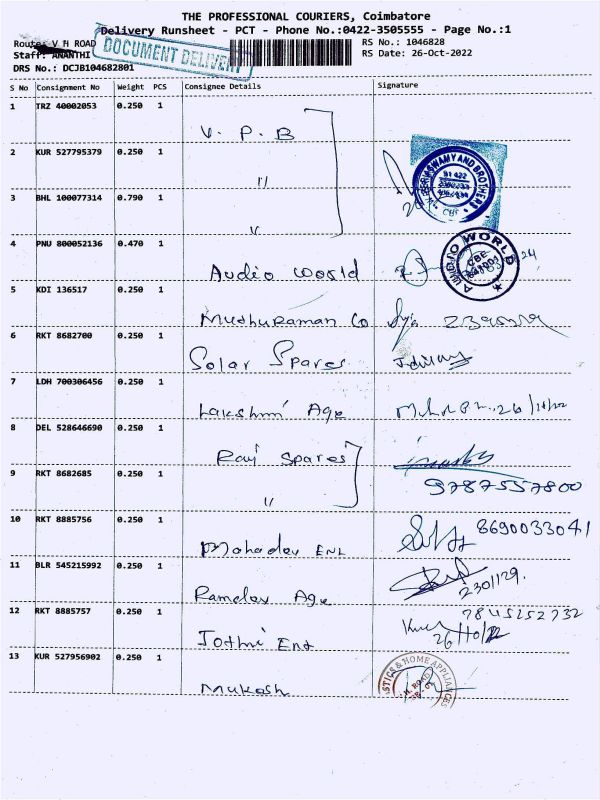 THE PROFESSIONAL COURIERS, Coimbatore
Delivery Runsheet - PCT - Phone No.:0422-3505555 - Page No.:1
Route: V H ROAD RS No.: 1046828
Staff: ANANTHI RS Date: 26-Oct-2022
DOCUMENT DELIVERY
DRS No.: DCJB104682801
S No Consignment No Weight PCS Consignee Details Signature
1 TRZ 40002053 0.250 1 V. P. B
2 KUR 527795379 0.250 1 "
SWAMY AND BROTHERS
CBE
3 BHL 100077314 0.790 1 "
4 PNU 800052136 0.470 1 Audio World
AUDIO WORLD
CBE
641001
5 KDI 136517 0.250 1 Muthuraman Co
6 RKT 8682700 0.250 1 Solar Spares
7 LDH 700306456 0.250 1 Lakshmi Age 26/10/22
8 DEL 528646690 0.250 1 Raj Spares
9 RKT 8682685 0.250 1 " 9787557800
10 RKT 8885756 0.250 1 Mahadev Ent 8690033041
11 BLR 545215992 0.250 1 Ramdev Age
12 RKT 8885757 0.250 1 Jothi Ent 26/10/22
13 KUR 527956902 0.250 1 Mukesh
STICS & HOME APPLIANCES